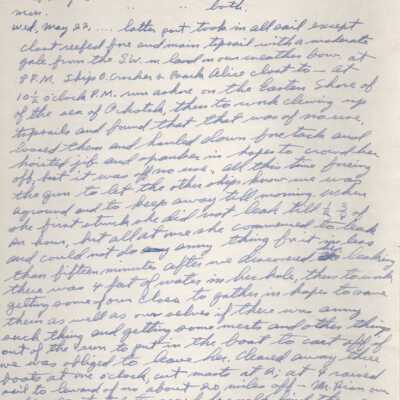 mon. " " " both.
Wed, May 22, .... latter part took in all sail except
close reefed fore and main topsail with a moderate
gale from the S.W. in land on our weather bow, at
8 P.M. Ships O. Crocker & Bark Alice close to - at
10½ o'clock P.M. run ashore on the Eastern Shore of
of the sea of Okhotsk, then to work clewing up
topsails and found that that was of no use,
loosed them and hauled down fore tack and
hoisted jib and spanker in hopes to crowd her
off, but it was off no use, all this time fireing
the gun to let the other ships know we was
aground and to keep away till morning. when
she first struck she did not leak till ½ ¾ of
an hour, but all at once she commenced to leak
and could not do any thing for it in less
than fifteen minutes after we discovered leaking
there was 4 feet of water in her hole, then to work
getting some four close to gather in hopes to save
them as well as our selves if there was any
such thing and getting some meets and other things
out of the run to put in the boat to cast off if
we was obliged to leave her. Cleared away three
boats at one o'clock, cut masts at 2; at 4 raised
sail to leward of us about 20 miles off - Mr.